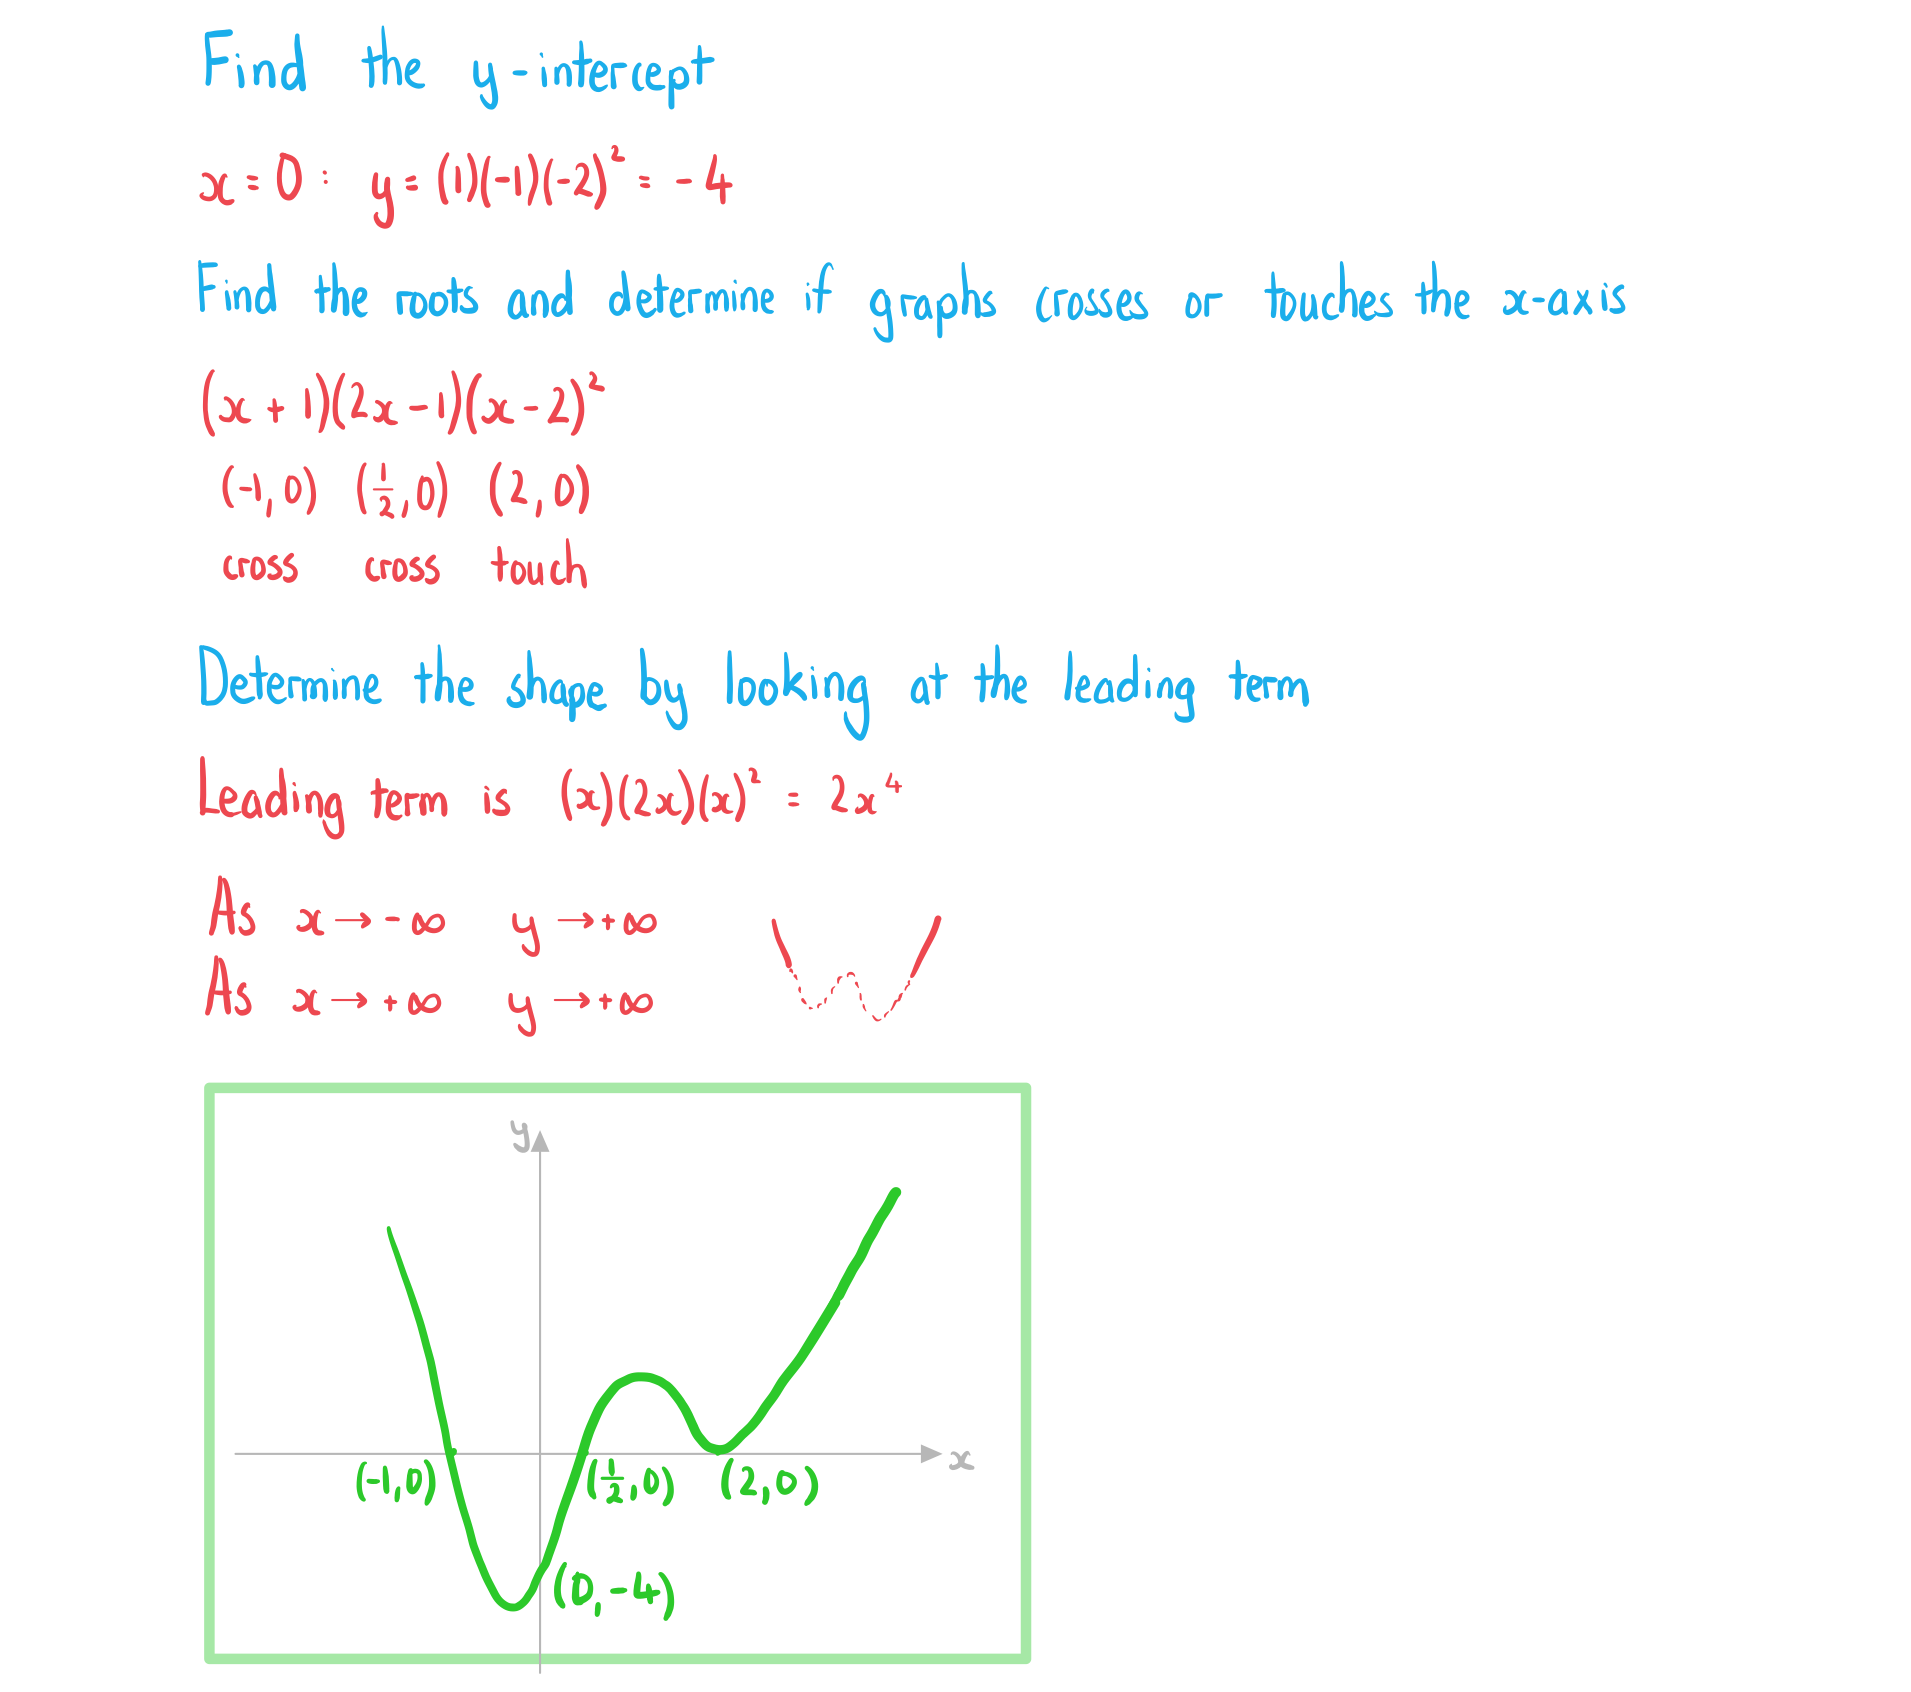 Find the y-intercept
x = 0 : y = (1)(-1)(-2)² = -4
Find the roots and determine if graphs crosses or touches the x-axis
(x + 1)(2x - 1)(x - 2)²
(-1, 0) (1/2, 0) (2, 0)
cross cross touch
Determine the shape by looking at the leading term
Leading term is (x)(2x)(x)² = 2x⁴
As x → -∞ y → +∞
As x → +∞ y → +∞
y
x
(-1, 0) (1/2, 0) (2, 0)
(0, -4)